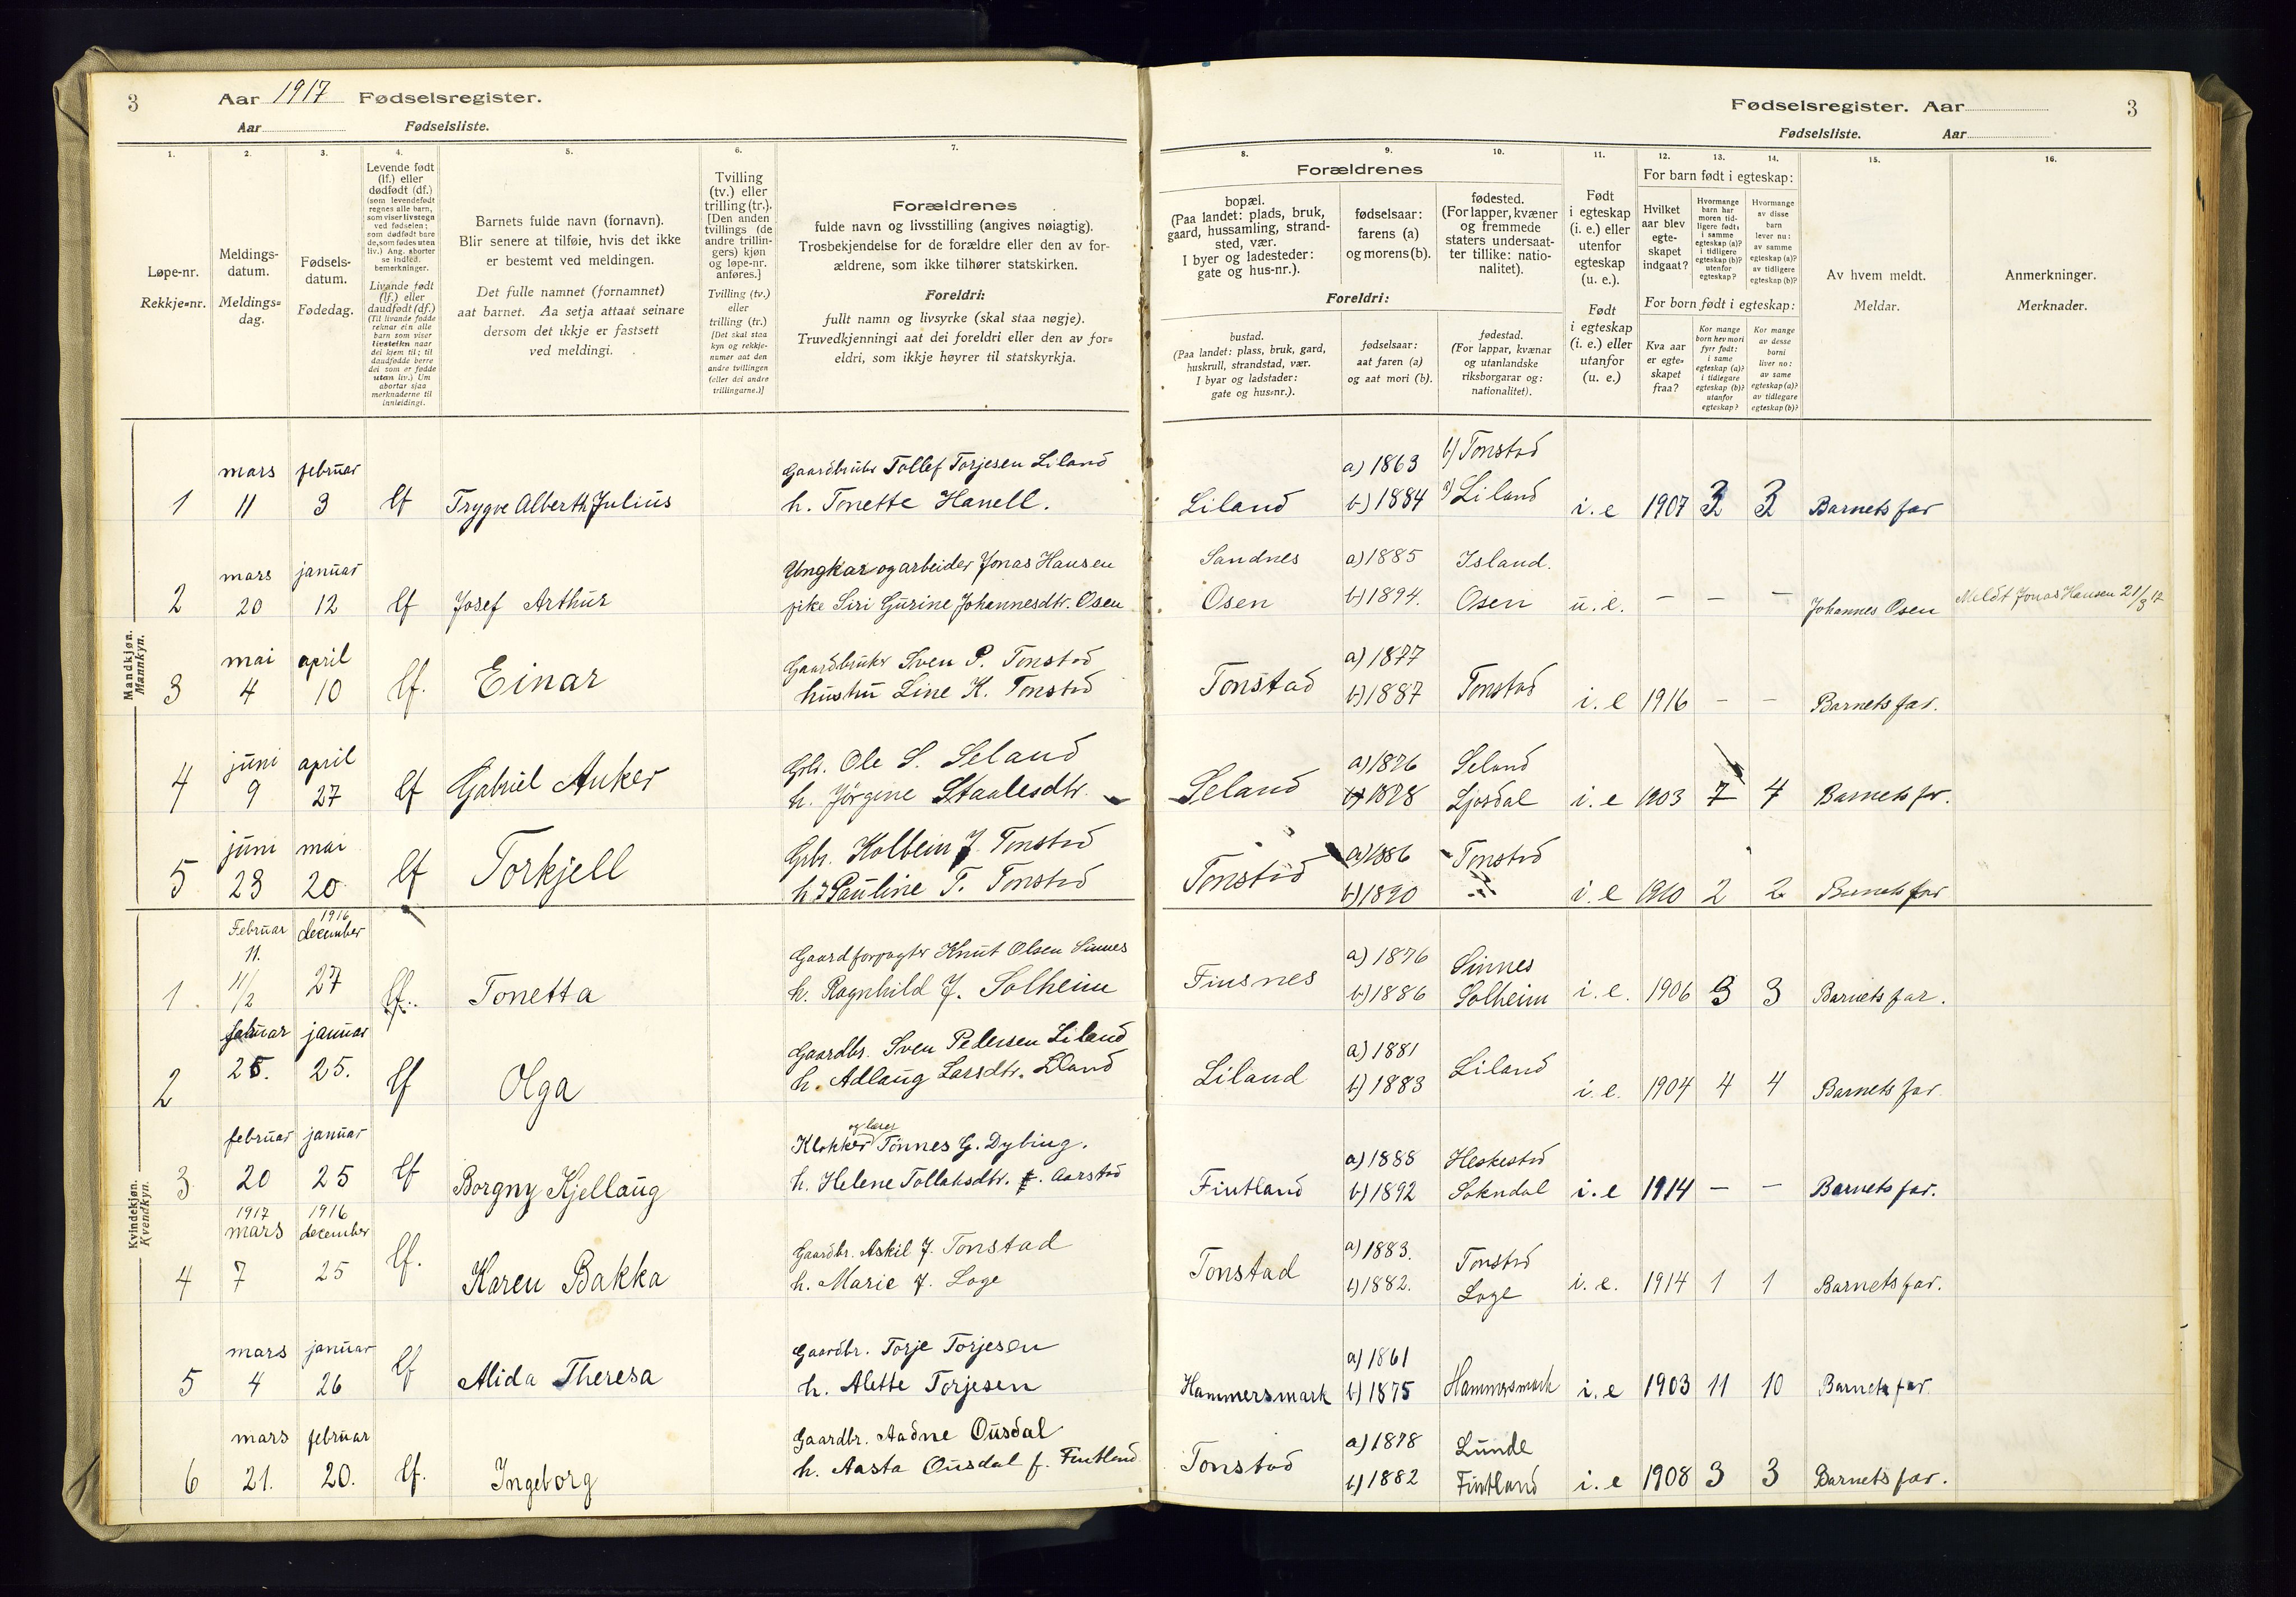 3
Aar 1917 Fødselsregister.
Aar Fødselsliste.
1.
2.
3.
4.
5.
6.
7.
Løpe-nr.
Rekkje=nr.
Meldings-
datum.
Meldings=
dag.
Fødsels-
datum.
Fødedag.
Levende født
(lf.) eller
dødfødt (df.)
(som levendefødt
regnes alle barn,
som viser livstegn
ved fødselen;
som dødfødt bare
de, som fødes uten
liv.) Ang. aborter
se indled.
bemerkninger.
Livande født
(lf.) eller
daudfødt (df.)
(Til livande fødde
reknar ein alle
barn som viser
livsteikn naar
dei kjem til; til
daudfødde berre
dei som er fødde
utan liv.) Um
abortar sjaa
merknaderne til
innleidingi.
Barnets fulde navn (fornavn).
Blir senere at tilføie, hvis det ikke
er bestemt ved meldingen.
Det fulle namnet (fornamnet)
aat barnet. Aa setja attaat seinare
dersom det ikkje er fastsett
ved meldingi.
Tvilling
(tv.) eller
trilling (tr.).
[Den anden
tvillings (de
andre trillin-
gers) kjøn
og løpe-nr.
anføres.]
Tvilling (tv.)
eller
trilling (tr.)
[Det skal staa
kyn og rekkje-
numer aat den
andre tvillingen
(eller dei andre
trillingarne.)]
Forældrenes
fulde navn og livsstilling (angives nøiagtig).
Trosbekjendelse for de forældre eller den av for-
ældrene, som ikke tilhører statskirken.
Foreldri:
fullt namn og livsyrke (skal staa nøgje).
Truvedkjenningi aat dei foreldri eller den av for=
eldri, som ikkje høyrer til statskyrkja.
Mandkjøn.
Mannkyn.
mars februar Gaardbruker Tollef Torjesen Liland
1 11 3 lf Trygve Alberth Julius h. Tonette Hanell.
mars januar Ungkar og arbeider Jonas Hansen
2 20 12 lf Josef Arthur pike Siri Gurine Johannesdtr. Osen
mai april Gaardbruker Sven P. Tonstad
3 4 10 lf. Einar hustru Line K. Tonstad
juni april Gbr. Ole S. Seland
4 9 27 lf Gabriel Anker h. Jørgine Staalesdtr.
juni mai Gbr. Kolbein J. Tonstad
5 23 20 lf Torkjell h. Pauline T. Tonstad
Kvindekjøn.
Kvendkyn.
1916
Februar december
11. Gaardforpagter Knut Olsen Sinnes
1. 11/2 27 lf. Tonetta h. Ragnhild J. Solheim
februar januar Gaardbr. Sven Pedersen Liland
2 25. 25. lf Olga h. Adlaug Larsdtr. Liland
og lærer
februar januar Klokker Tønnes G. Dybing.
3 20 25 lf Borgny Kjellaug h. Helene Tollaksdtr. f. Aarstad
1917 1916
mars december Gaardbr. Askil J. Tonstad
4 7 25 lf. Karen Bakka h. Marie J. Loge
mars januar Gaardbr. Torje Torjesen
5 4 26 lf Alida Theresa h. Alette Torjesen
mars februar Gaardbr. Aadne Ousdal
6 21. 20. lf. Ingeborg h. Aasta Ousdal f. Fintland
Fødselsregister. Aar
3
Fødselsliste. Aar
8.
9.
10.
11.
12.
13.
14.
15.
16.
Forældrenes
bopæl.
(Paa landet: plads, bruk,
gaard, hussamling, strand-
sted, vær.
I byer og ladesteder:
gate og hus-nr.).
fødselsaar:
farens (a)
og morens (b).
fødested.
(For lapper, kvæner
og fremmede
staters undersaat-
ter tillike: natio-
nalitet).
Foreldri:
bustad.
(Paa landet: plass, bruk, gard,
huskrull, strandstad, vær.
I byar og ladstader:
gate og hus=nr.).
fødselsaar:
aat faren (a)
og aat mori (b).
fødestad.
(For lappar, kvænar
og utanlandske
riksborgarar og:
nationalitet).
Født
i egteskap
(i. e.) eller
utenfor
egteskap
(u. e.).
Født
i egteskap
(i. e.) eller
utanfor
(u. e.)
For barn født i egteskap:
Hvilket
aar blev
egte-
skapet
indgaat?
Hvormange
barn har
moren tid-
ligere født:
i samme
egteskap (a)?
i tidligere
egteskap (b)?
utenfor
egteskap?
Hvormange
av disse
barn
lever nu:
av samme
egteskap (a)?
av tidligere
egteskap (b)?
For born født i egteskap:
Kva aar
er egte=
skapet
fraa?
Kor mange
born hev mori
fyrr født:
i same
egteskap (a)?
i tidlegare
egteskap (b)?
utanfor
egteskap?
Kor mange
av desse
borni
liver no:
av same
egteskap (a)?
av tidlegare
egteskap (b)?
Av hvem meldt.
Meldar.
Anmerkninger.
Merknader.
a) 1863 b) Tonstad
Liland b) 1884 a) Liland i. e 1907 3 3 Barnets far
Sandnes a) 1885 Island.
Osen b) 1894. Osen u. e. — — — Johannes Osen Meldt Jonas Hansen 21/3 17
a) 1877
Tonstad b) 1887 Tonstad i. e 1916 — — Barnets far.
a) 1876 Seland
Seland b) 1878 Ljosdal i. e 1903 7 4 Barnets far.
a) 1886 Tonstad
Tonstad b) 1890 i. e 1910 2 2 Barnets far
a) 1876 Sinnes
Finsnes b) 1886 Solheim i. e. 1906 3 3 Barnets far.
a) 1881
Liland b) 1883 Liland i. e. 1904 4 4 Barnets far
a) 1888 Heskestad
Fintland b) 1892 Sokndal i. e 1914 — — Barnets far.
a) 1883. Tonstad
Tonstad b) 1882. Loge i. e. 1914 1 1 Barnets far.
a) 1861
Hammersmark b) 1875 Hammersmark i. e 1903 11 10 Barnets far
a) 1878 Lunde
Tonstad b) 1882 Fintland i. e 1908 3 3 Barnets far.